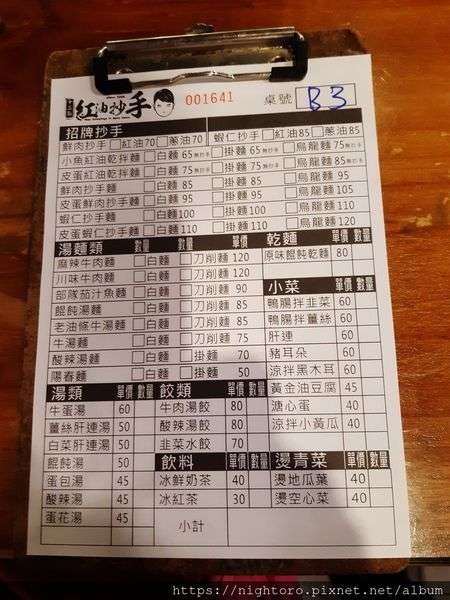 紅油抄手 001641 桌號 B3
招牌抄手
鮮肉抄手 □紅油70 □蔥油70 蝦仁抄手 □紅油85 □蔥油85
小魚紅油乾拌麵 □白麵 65 無抄手 □掛麵 65 無抄手 □烏龍麵 75 無抄手
皮蛋紅油乾拌麵 □白麵 75 無抄手 □掛麵 75 無抄手 □烏龍麵 85 無抄手
鮮肉抄手麵 □白麵 85 □掛麵 85 □烏龍麵 95
皮蛋鮮肉抄手麵 □白麵 95 □掛麵 95 □烏龍麵 105
蝦仁抄手麵 □白麵 100 □掛麵 100 □烏龍麵 110
皮蛋蝦仁抄手麵 □白麵 110 □掛麵 110 □烏龍麵 120
湯麵類 數量 數量 單價
麻辣牛肉麵 □白麵 □刀削麵 120
川味牛肉麵 □白麵 □刀削麵 120
部隊茄汁魚麵 □白麵 □刀削麵 90
餛飩湯麵 □白麵 □刀削麵 85
老油條牛湯麵 □白麵 □刀削麵 85
牛湯麵 □白麵 □刀削麵 75
酸辣湯麵 □白麵 □掛麵 70
陽春麵 □白麵 □掛麵 50
乾麵 單價 數量
原味餛飩乾麵 80
小菜 單價 數量
鴨腸拌韭菜 60
鴨腸拌薑絲 60
肝連 60
豬耳朵 60
涼拌黑木耳 60
黃金油豆腐 45
溏心蛋 40
涼拌小黃瓜 40
湯類 單價 數量
牛蛋湯 60
薑絲肝連湯 50
白菜肝連湯 50
餛飩湯 50
蛋包湯 45
酸辣湯 45
蛋花湯 45
餃類 單價 數量
牛肉湯餃 80
酸辣湯餃 80
韭菜水餃 70
飲料 單價 數量
冰鮮奶茶 40
冰紅茶 30
燙青菜 單價 數量
燙地瓜葉 40
燙空心菜 40
小計
https://nightoro.pixnet.net/album